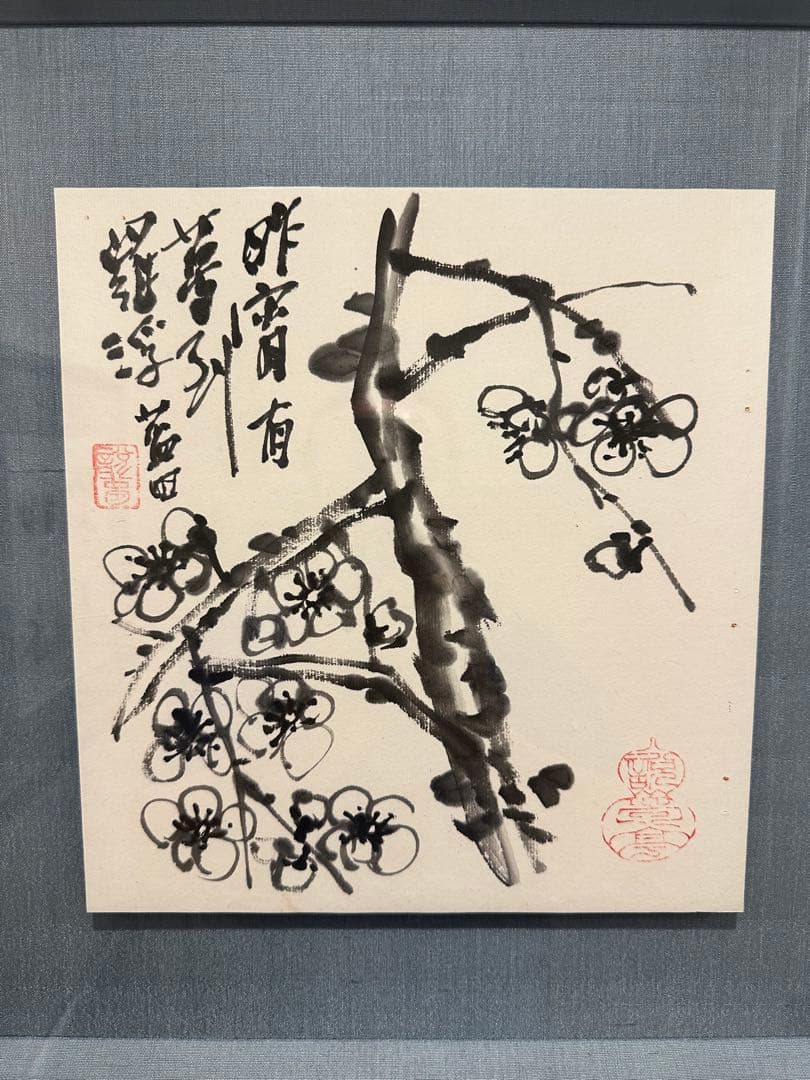 昨宵有
夢到
羅浮 藍田